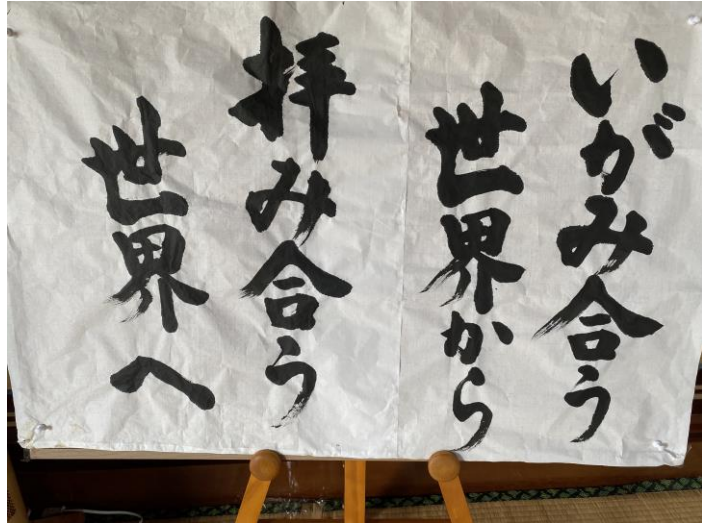 いがみ合う
世界から
拝み合う
世界へ